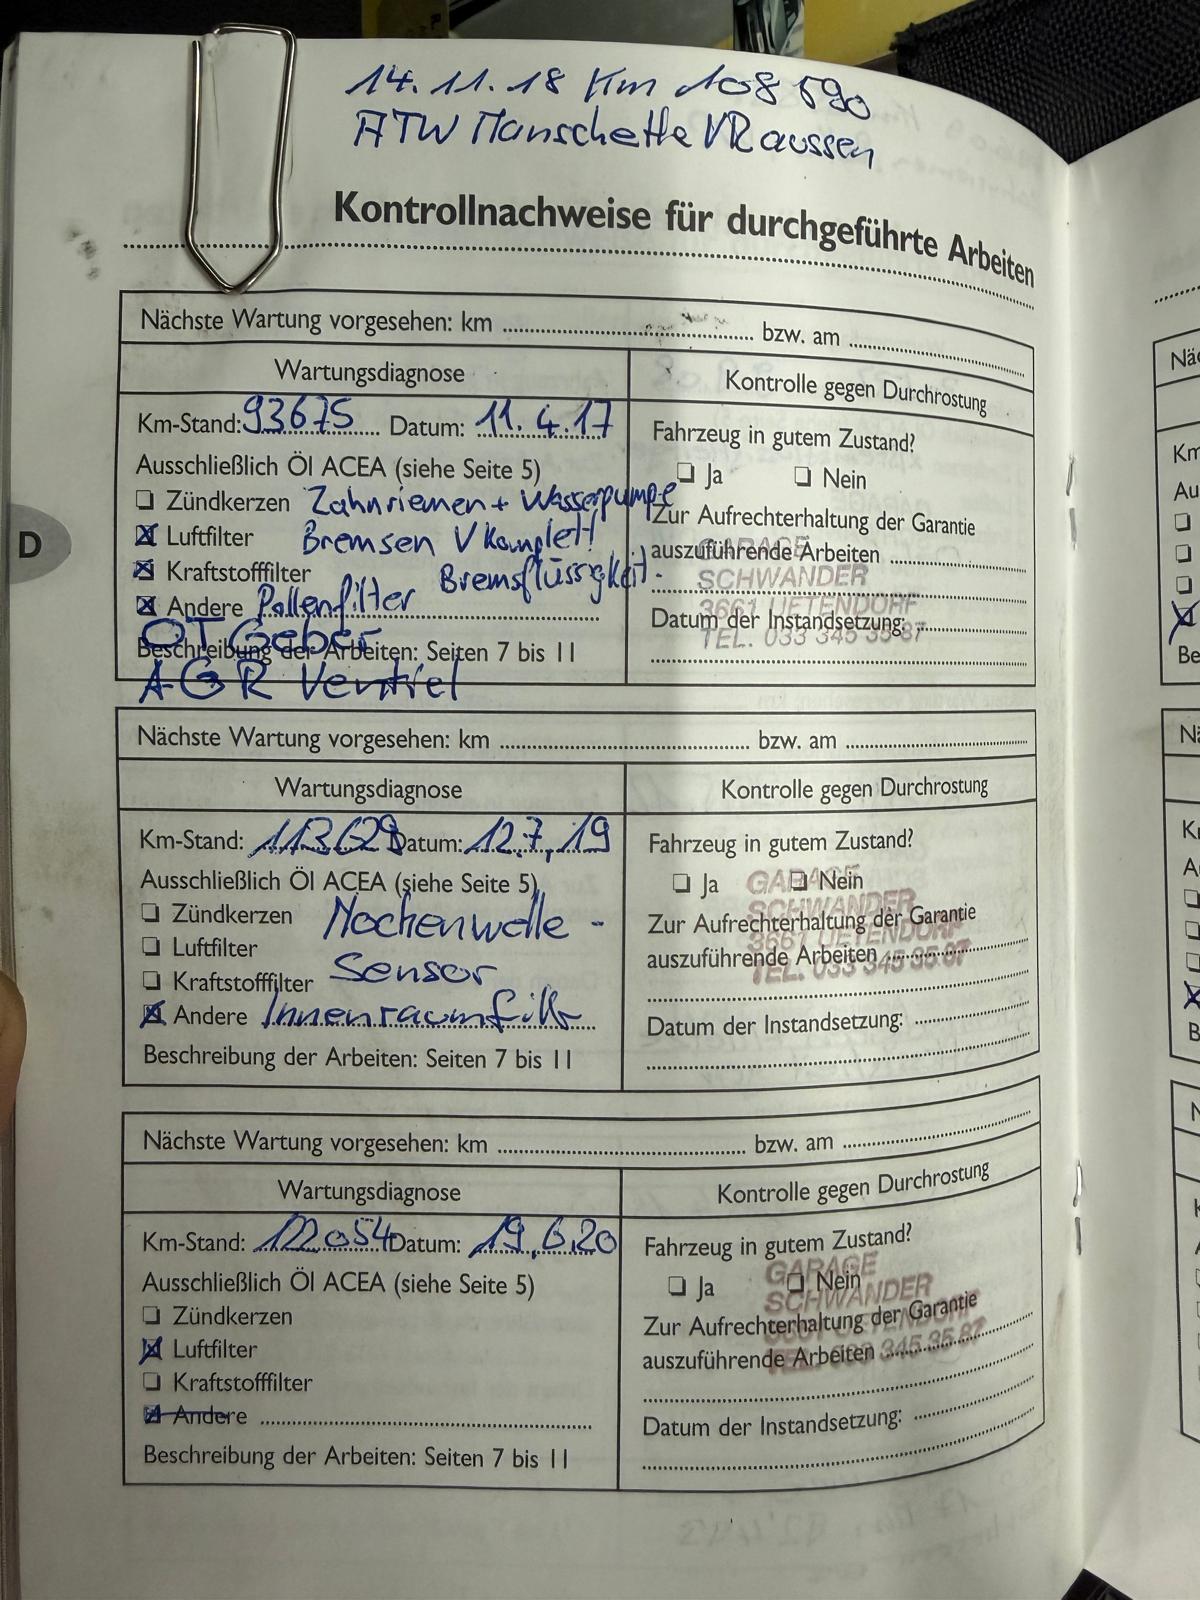 14.11.18 Km 108 590
ATW Manschette VR aussen
Kontrollnachweise für durchgeführte Arbeiten
Nächste Wartung vorgesehen: km bzw. am
Wartungsdiagnose
Kontrolle gegen Durchrostung
Km-Stand: 93675 Datum: 11.4.17
Ausschließlich Öl ACEA (siehe Seite 5)
Zündkerzen Zahnriemen + Wasserpumpe
Luftfilter Bremsen V Komplett
Kraftstofffilter Bremsflüssigkeit.
Andere Pollenfilter
OT Geber
Beschreibung der Arbeiten: Seiten 7 bis 11
AGR Ventiel
Fahrzeug in gutem Zustand?
Ja Nein
Zur Aufrechterhaltung der Garantie
auszuführende Arbeiten
Datum der Instandsetzung:
GARAGE
SCHWANDER
3661 UETENDORF
TEL. 033 345 35 87
D
Nächste Wartung vorgesehen: km bzw. am
Wartungsdiagnose
Kontrolle gegen Durchrostung
Km-Stand: 113629 Datum: 12.7.19
Ausschließlich Öl ACEA (siehe Seite 5)
Zündkerzen Nockenwelle-
Luftfilter
Kraftstofffilter Sensor
Andere Innenraumfilt
Beschreibung der Arbeiten: Seiten 7 bis 11
Fahrzeug in gutem Zustand?
Ja Nein
Zur Aufrechterhaltung der Garantie
auszuführende Arbeiten
Datum der Instandsetzung:
GARAGE
SCHWANDER
3661 UETENDORF
TEL. 033 345 35 87
Nächste Wartung vorgesehen: km bzw. am
Wartungsdiagnose
Kontrolle gegen Durchrostung
Km-Stand: 122054 Datum: 19.6.20
Ausschließlich Öl ACEA (siehe Seite 5)
Zündkerzen
Luftfilter
Kraftstofffilter
Andere
Beschreibung der Arbeiten: Seiten 7 bis 11
Fahrzeug in gutem Zustand?
Ja Nein
Zur Aufrechterhaltung der Garantie
auszuführende Arbeiten
Datum der Instandsetzung:
GARAGE
SCHWANDER
3661 UETENDORF
TEL. 033 345 35 87